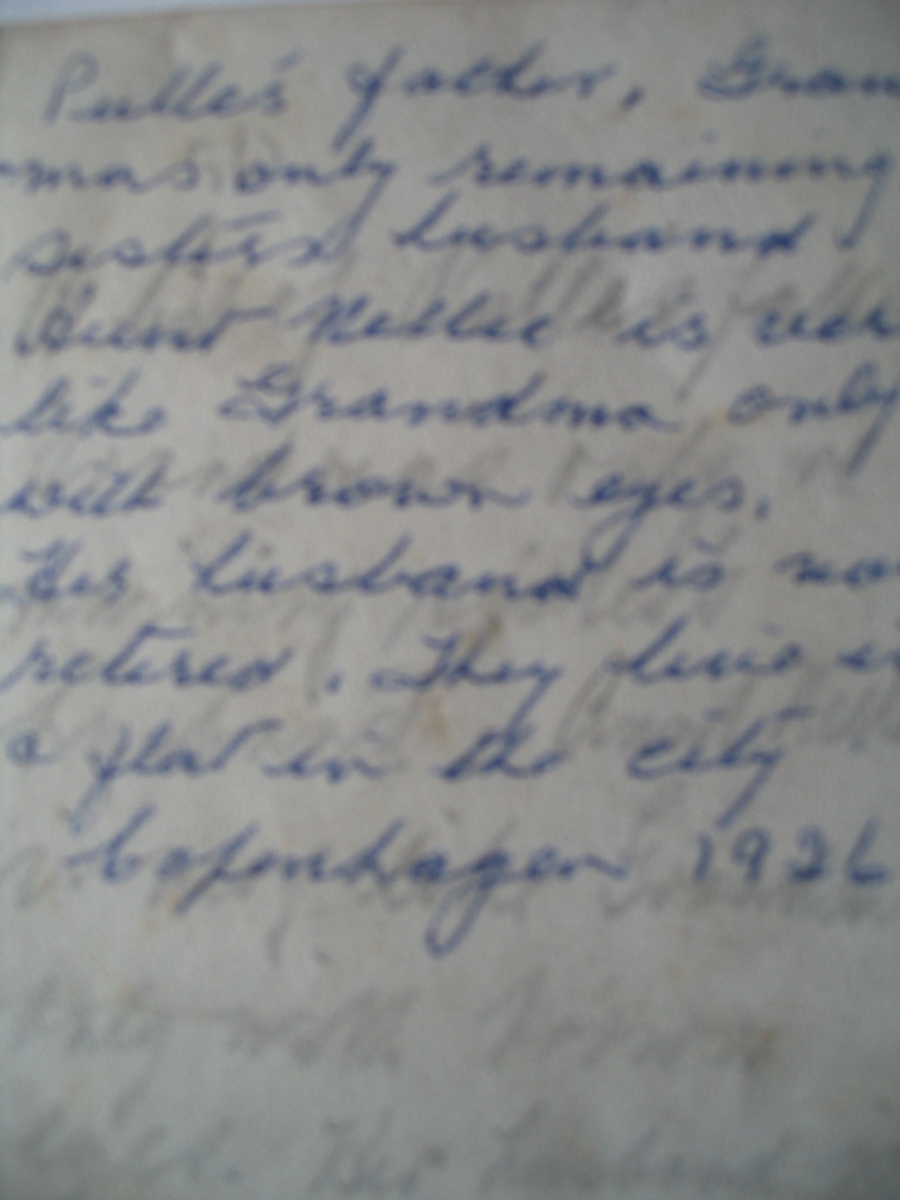 Pulle's father, Gran
-mas only remaining
sisters husband.
Aunt Nellie is ver
like Grandma only
with brown eyes.
Her husband is no
retired. They live i
a flat in the city
Copenhagen 1926